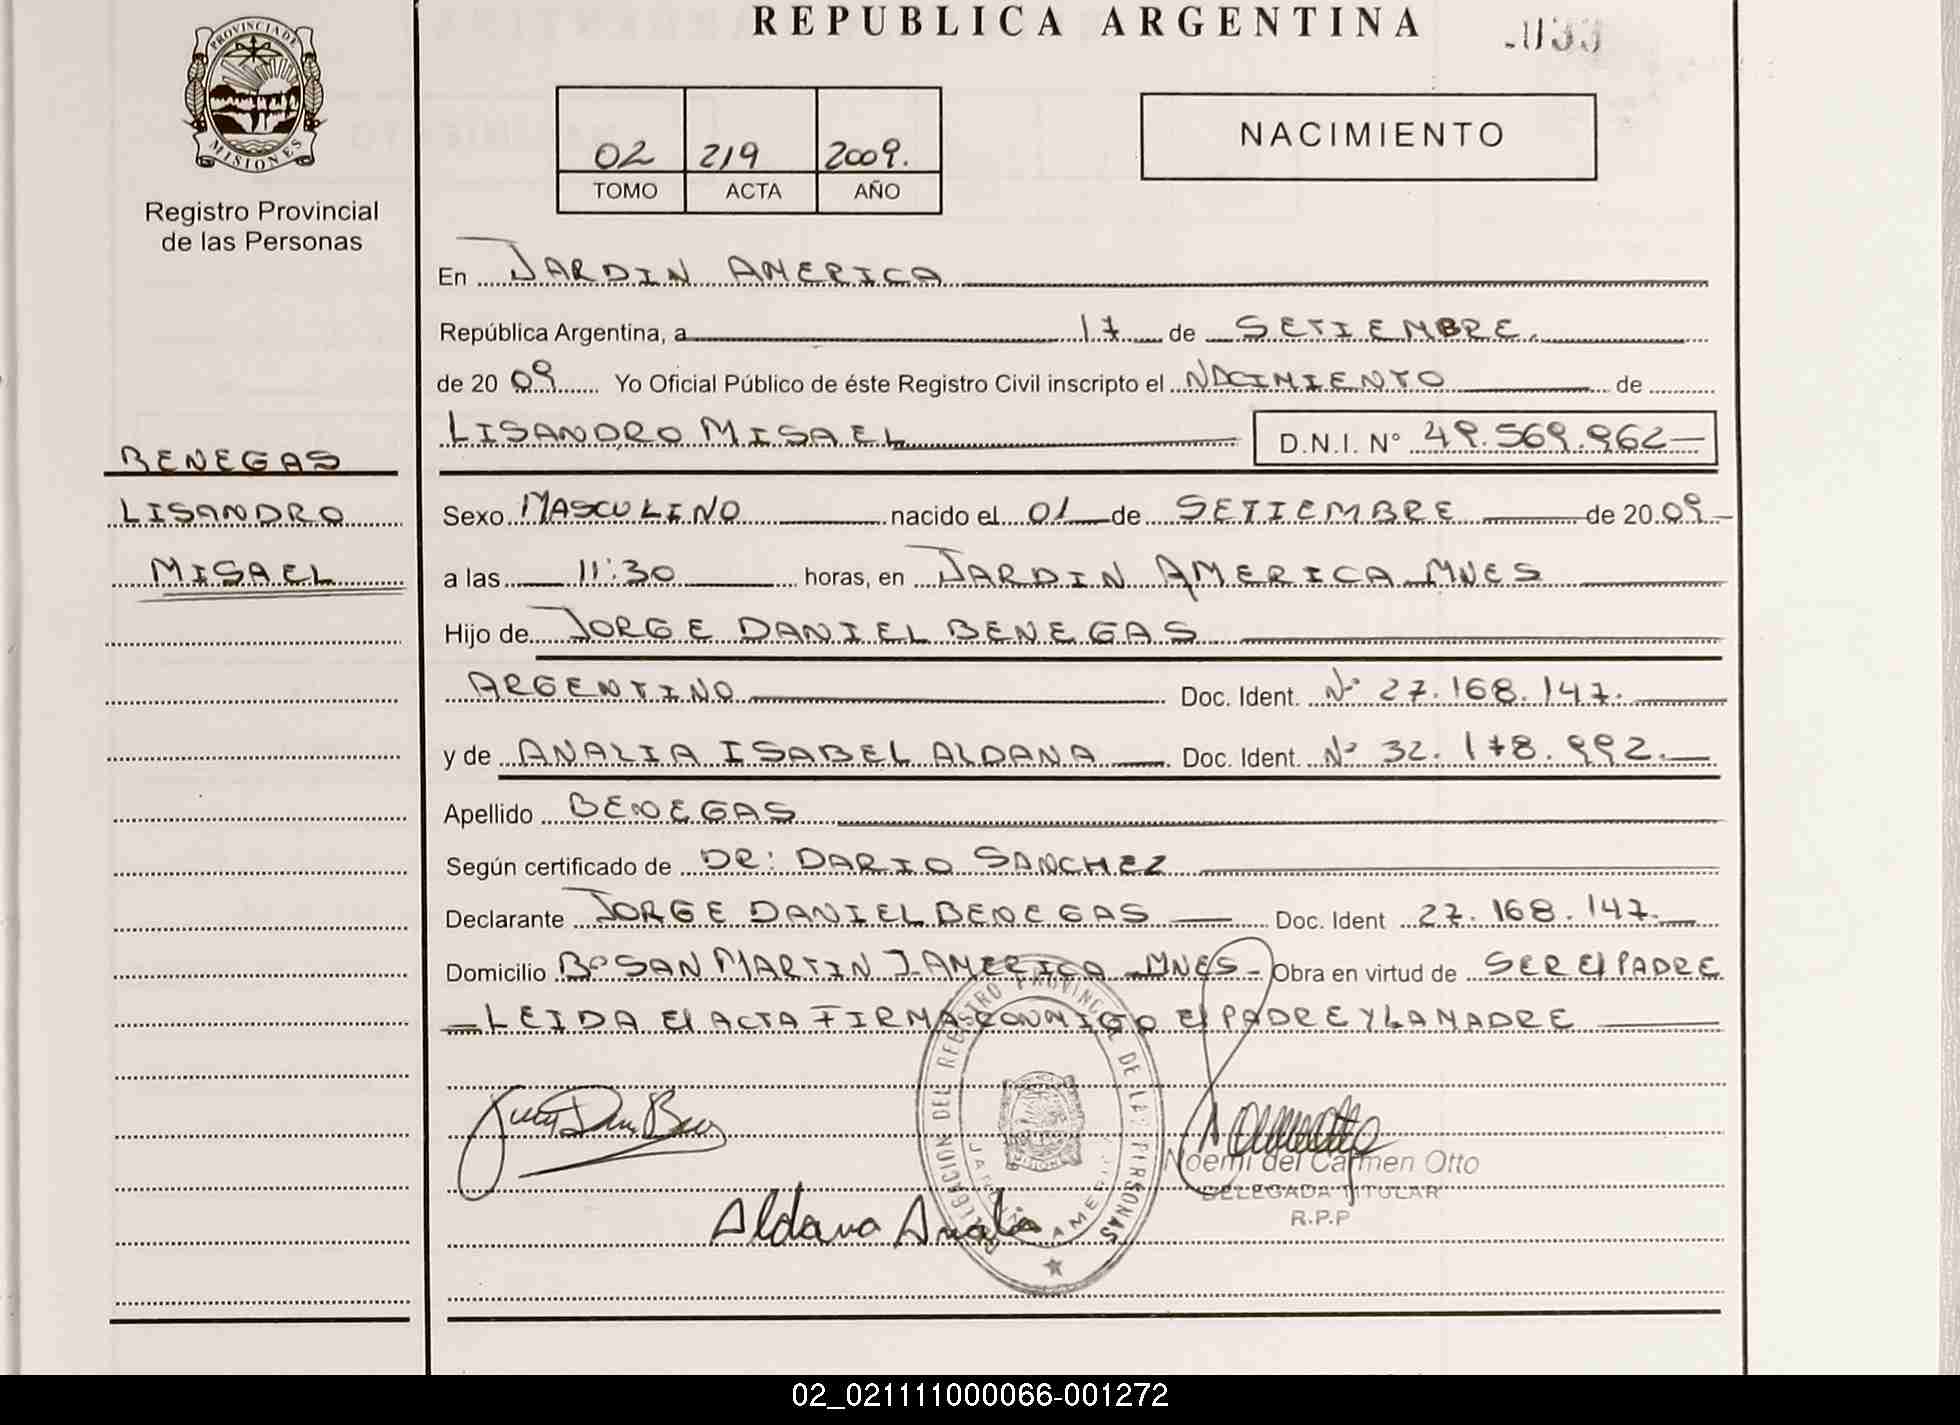 REPUBLICA ARGENTINA
PROVINCIA DE MISIONES
Registro Provincial
de las Personas
02 219 2009.
TOMO ACTA AÑO
NACIMIENTO
En JARDIN AMERICA
República Argentina, a 17 de SETIEMBRE.
de 2009 Yo Oficial Público de éste Registro Civil inscripto el NACIMIENTO de
LISANDRO MISAEL D.N.I. N° 49.569.962
BENEGAS
LISANDRO
MISAEL
Sexo MASCULINO nacido el 01 de SETIEMBRE de 2009
a las 11:30 horas, en JARDIN AMERICA MNES
Hijo de JORGE DANIEL BENEGAS
ARGENTINO Doc. Ident. N° 27.168.147.
y de ANALIA ISABEL ALDANA Doc. Ident. N° 32.178.992.
Apellido BENEGAS
Según certificado de DR: DARIO SANCHEZ
Declarante JORGE DANIEL BENEGAS Doc. Ident 27.168.147.
Domicilio B° SAN MARTIN J. AMERICA MNES Obra en virtud de SER El PADRE
LEIDA El ACTA FIRMAS CONMIGO El PADRE Y LA MADRE
DELEGACION DEL REGISTRO PROVINCIAL DE LAS PERSONAS
JARDIN AMERICA
MISIONES
Noemi del Carmen Otto
DELEGADA TITULAR
R.P.P
Aldana Analia
02_021111000066-001272